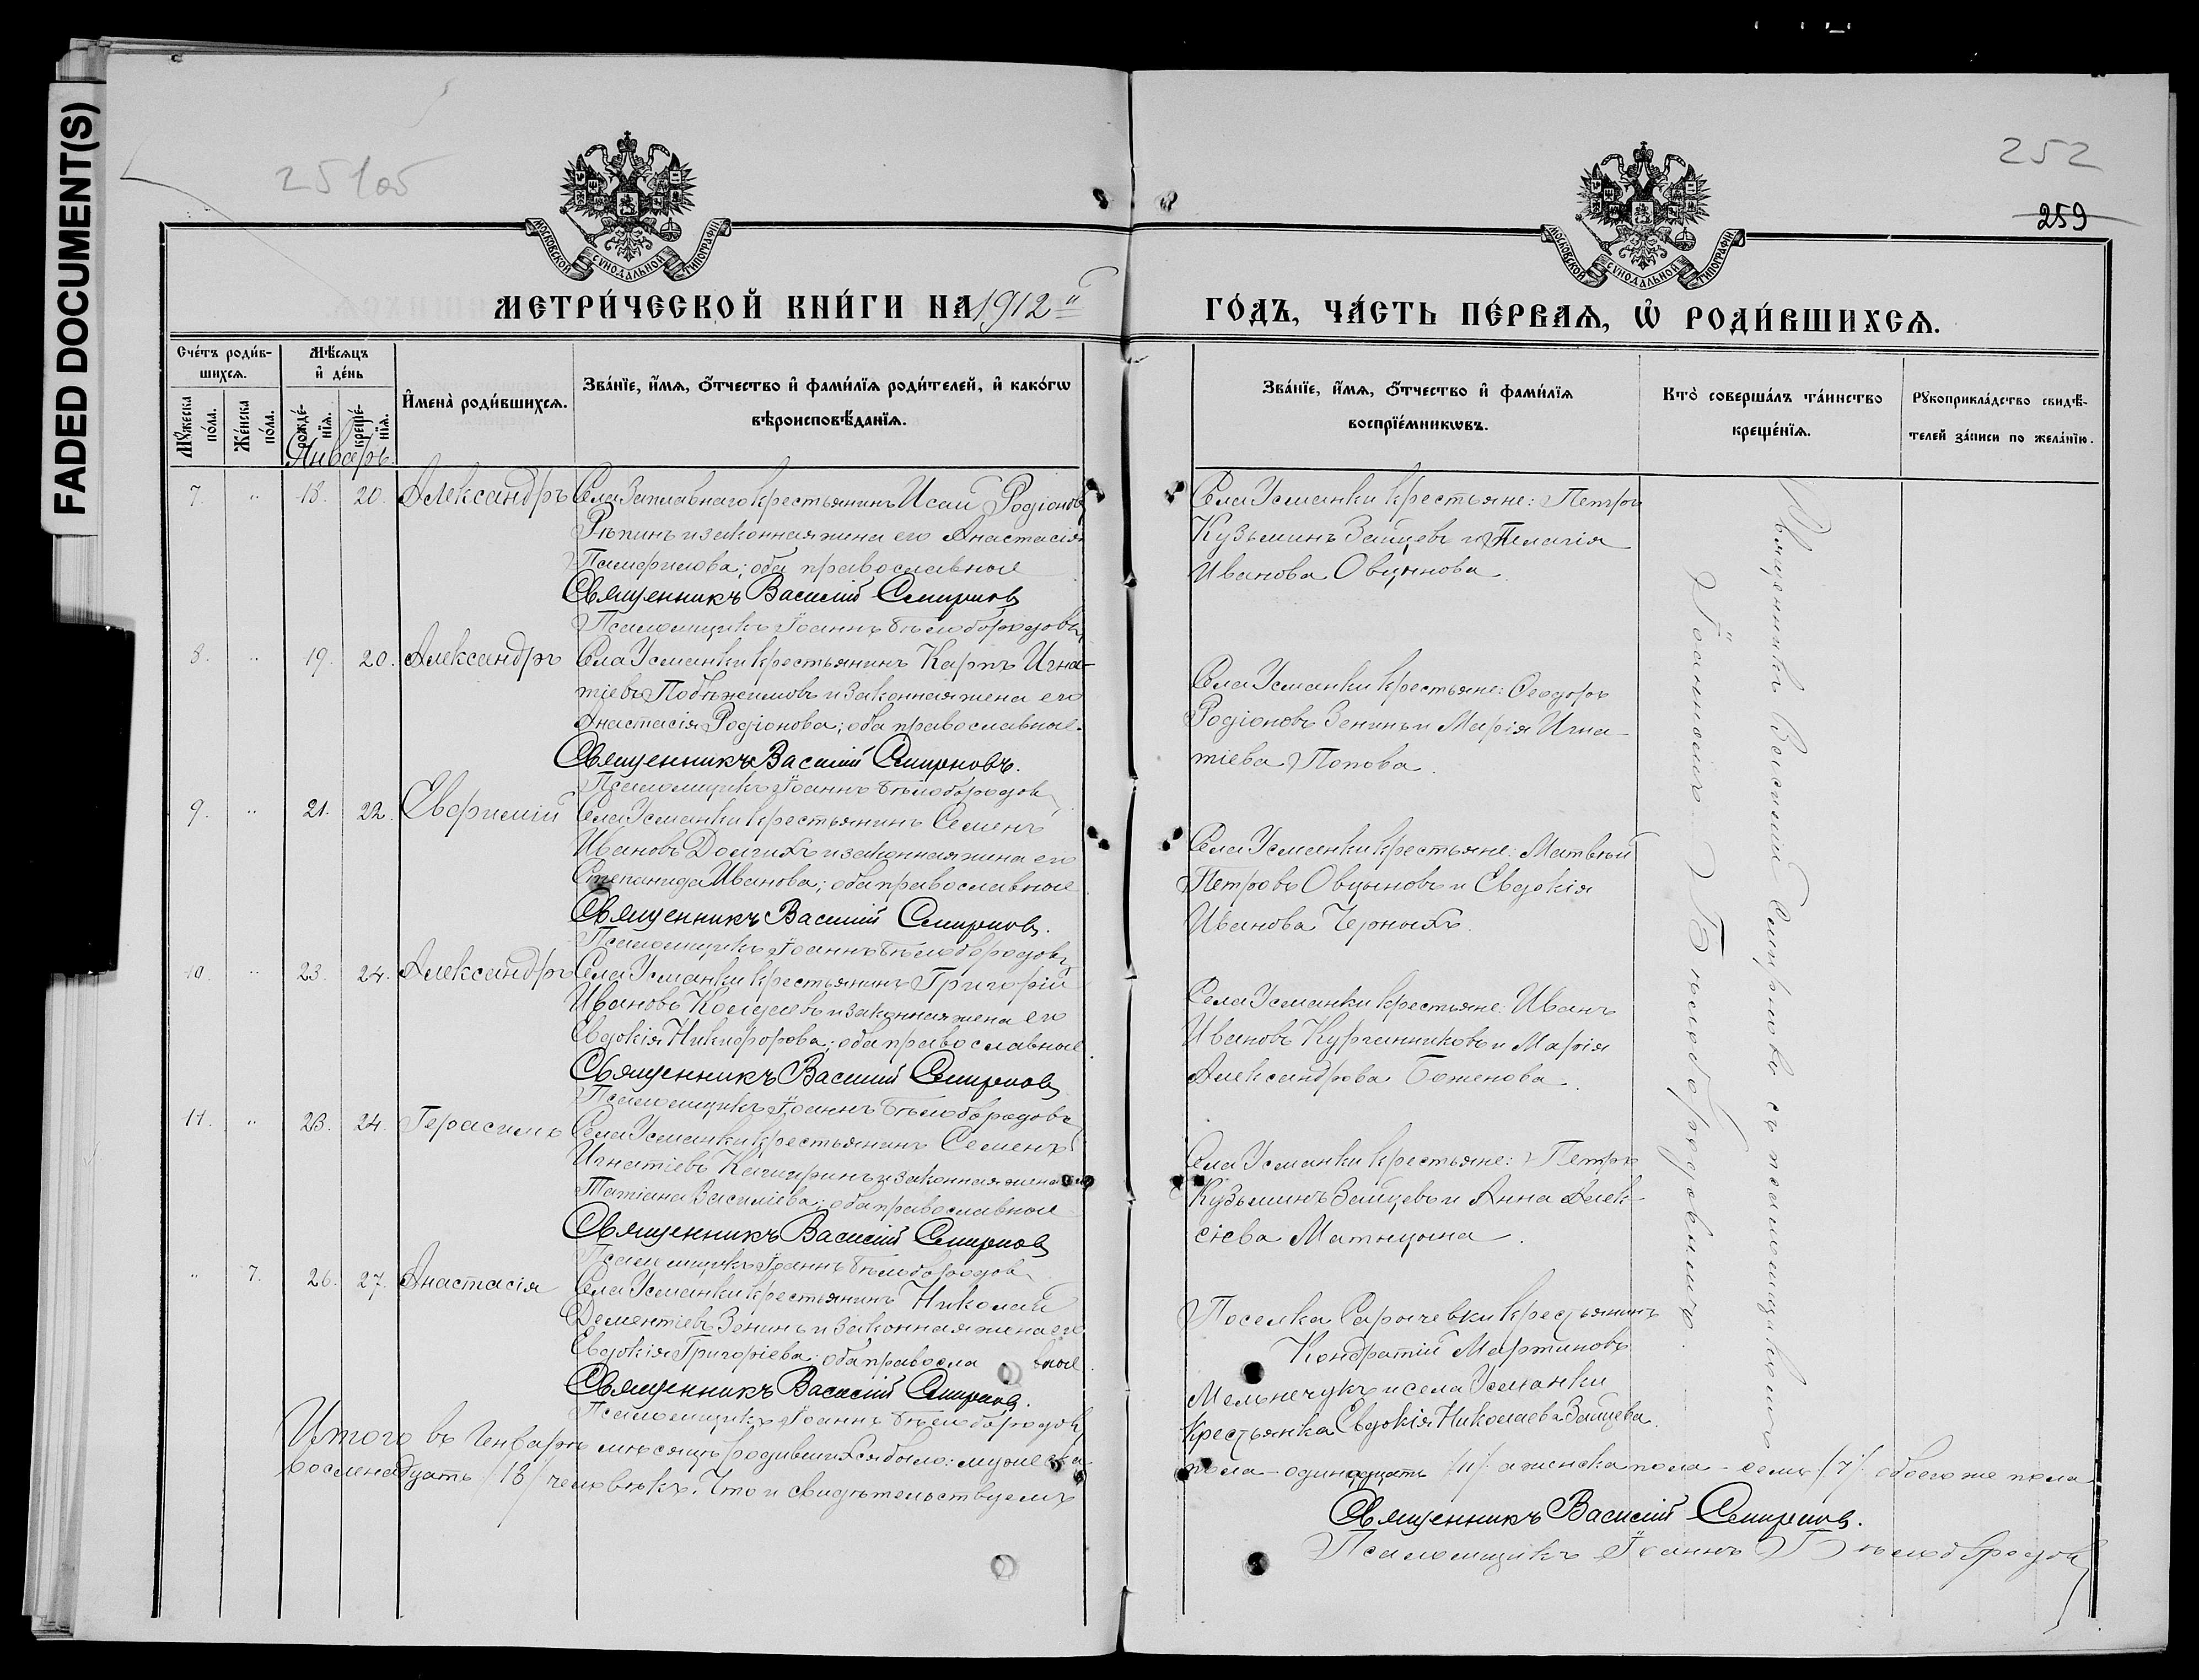 FADED DOCUMENT(S)
252
259
МОСКОВСКОЙ СѴНОДАЛЬНОЙ ТИПОГРАФІИ
МОСКОВСКОЙ СѴНОДАЛЬНОЙ ТИПОГРАФІИ
МЕТРИ́ЧЕСКОЙ КНИ́ГИ НА 1912й
ГО́ДЪ, ЧА́СТЬ ПЕ́РВАѦ, Ѡ҆ РОДИ́ВШИХСѦ.
Сче́тъ роди́в-
шихсѧ.
Мꙋ́жеска
по́ла.
Же́нска
по́ла.
Мѣ́сѧцъ
и҆ де́нь
рожде́-
нїѧ.
креще́-
нїѧ.
Январь.
И҆мена̀ роди́вшихсѧ.
Зва́нїе, и҆́мѧ, ѻ҆́тчество и҆ фами́лїѧ роди́телей, и҆ како́гѡ
вѣроисповѣ́данїѧ.
Зва́нїе, и҆́мѧ, ѻ҆́тчество и҆ фами́лїѧ
воспрїе́мникѡвъ.
Кто̀ соверша́лъ та́инство
креще́нїѧ.
Рꙋкоприкла́дство свидѣ́-
телей за́писи по жела́нїю.
7. " 18. 20. Александръ Села Заплавнаго крестьянинъ Исаи Родіоновъ
Рѣпинъ и законная жена его Анастасія
Памфилова; оба православные
Священникъ Василій Смирновъ
Псаломщикъ Іоаннъ Бѣлобородовъ
Села Усманки крестьяне: Петръ
Кузьминъ Зайцевъ и Пелагія
Иванова Овцынова.
8. " 19. 20. Александръ Села Усманки крестьянинъ Карпъ Игна-
тіевъ Побѣжимовъ и законная жена его
Анастасія Родіонова; оба православные.
Священникъ Василій Смирновъ.
Псаломщикъ Іоаннъ Бѣлобородовъ
Села Усманки крестьяне: Ѳеодоръ
Родіоновъ Зенинъ и Марія Игна-
тіева Попова.
9. " 21. 22. Евфимій Села Усманки крестьянинъ Семенъ
Ивановъ Долгихъ и законная жена его
Степанида Иванова; оба православные
Священникъ Василій Смирновъ.
Псаломщикъ Іоаннъ Бѣлобородовъ
Села Усманки крестьяне: Матвѣй
Петровъ Овцыновъ и Евдокія
Иванова Черныхъ.
10. " 23. 24. Александръ Села Усманки крестьянинъ Григорій
Ивановъ и законная жена его
Евдокія Никифорова; оба православные.
Священникъ Василій Смирновъ
Псаломщикъ Іоаннъ Бѣлобородовъ
Села Усманки крестьяне: Иванъ
Ивановъ Курганниковъ и Марія
Александрова Баженова.
11. " 23. 24. Герасимъ Села Усманки крестьянинъ Семенъ
Игнатіевъ Каширинъ и законная жена его
Татіана Василіева; оба православные
Священникъ Василій Смирновъ
Псаломщикъ Іоаннъ Бѣлобородовъ
Села Усманки крестьяне: Петръ
Кузьминъ Зайцевъ и Анна Алек-
сіева Матыцына.
" 7. 26. 27. Анастасія Села Усманки крестьянинъ Николай
Дементіевъ Зенинъ и законная жена его
Евдокія Григоріева; оба православные.
Священникъ Василій Смирновъ.
Псаломщикъ Іоаннъ Бѣлобородовъ
Поселка Сарычевки крестьянинъ
Кондратій Мартиновъ
Мельнечукъ и села Усманки
крестьянка Евдокія Николаева Зайцева.
Священникъ Василій Смирновъ съ псаломщикомъ
Іоанномъ Бѣлобородовымъ.
Итого въ Генварѣ мѣсяцѣ родившихся было: мужеска
пола – одинадцать /11/ а женска пола – семь /7/ обоего же пола
восемнадцать /18/ человѣкъ. Что и свидѣтельствуемъ
Священникъ Василій Смирновъ.
Псаломщикъ Іоаннъ Бѣлобородовъ